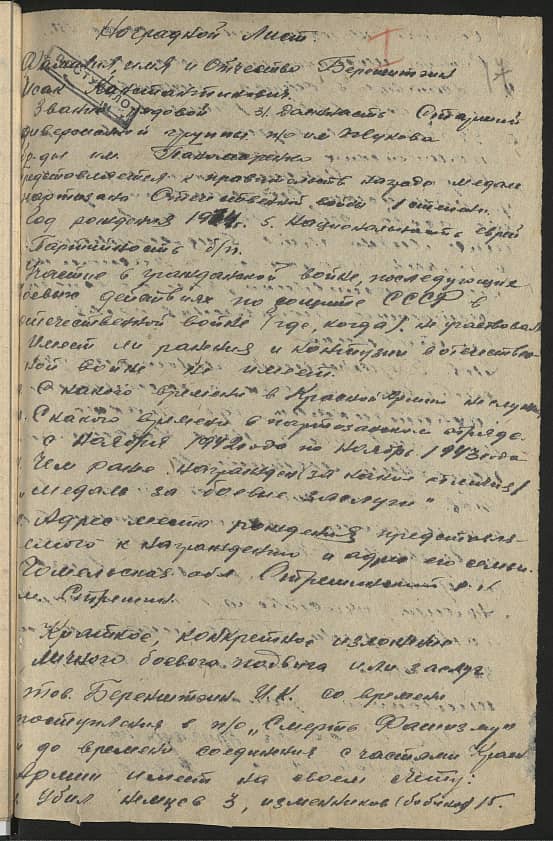 Наградной Лист.
Фамилия, имя и Отчество Беренштейн
Исак Константинович
Звание рядовой 3. Должность Старший
диверсионной группы п/о им Жукова
бр-ды им. Пономаренко
представляется к правительств награде медаль
партизану Отечественной войны 1 степени.
Год рождения 1914г. 5. Национальность еврей
Партийность б/п.
Участие в гражданской войне, последующих
боевых действиях по защите СССР в
отечественной войне (где, когда). не участвовал
Имеет ли ранения и контузии в отечествен-
ной войне не имеет.
С какого времени в Красной Армии не служил
С какого времени в партизанском отряде.
с Ноября 1942 года по Ноябрь 1943 года
Чем ранее награжден (за какие отличия)
"Медаль за боевые заслуги"
Адрес место рождения представля-
емого к награждению и адрес его семьи.
Гомельская обл. Стрешинский р-н
м. Стрешин.
Краткое, конкретное изложение
личного боевого подвига или заслуг
тов. Беренштейн И.К. со времени
поступления в п/о "Смерть Фашизму"
и до времени соединения с частями Крас
Армии имеет на своем счету:
Убил немцев 3, изменников (бобиков) 15.